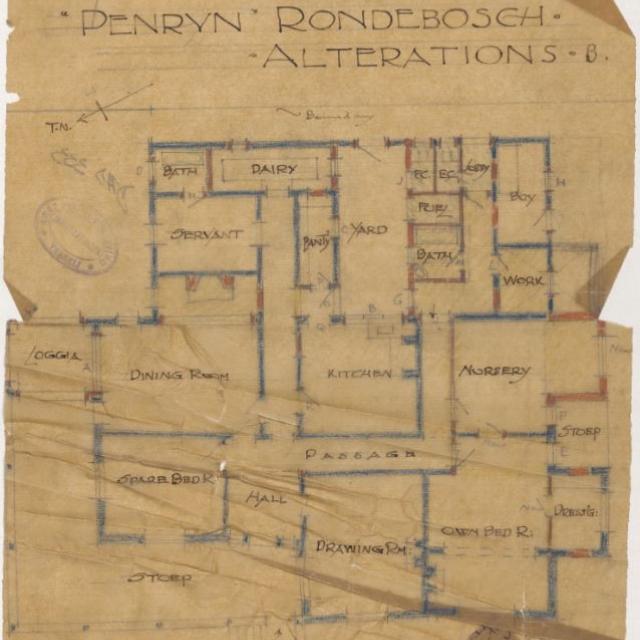 "PENRYN" RONDEBOSCH.
ALTERATIONS. B.
T.N.
BATH
DAIRY
EC
EC
BOY
SERVANT
PANTY
YARD
FUEL
BATH
WORK
LOGGIA
DINING ROOM
KITCHEN
NURSERY
STOEP
PASSAGE
SPARE BED R.
HALL
OWN BED R:
DRESSG:
DRAWING RM
STOEP